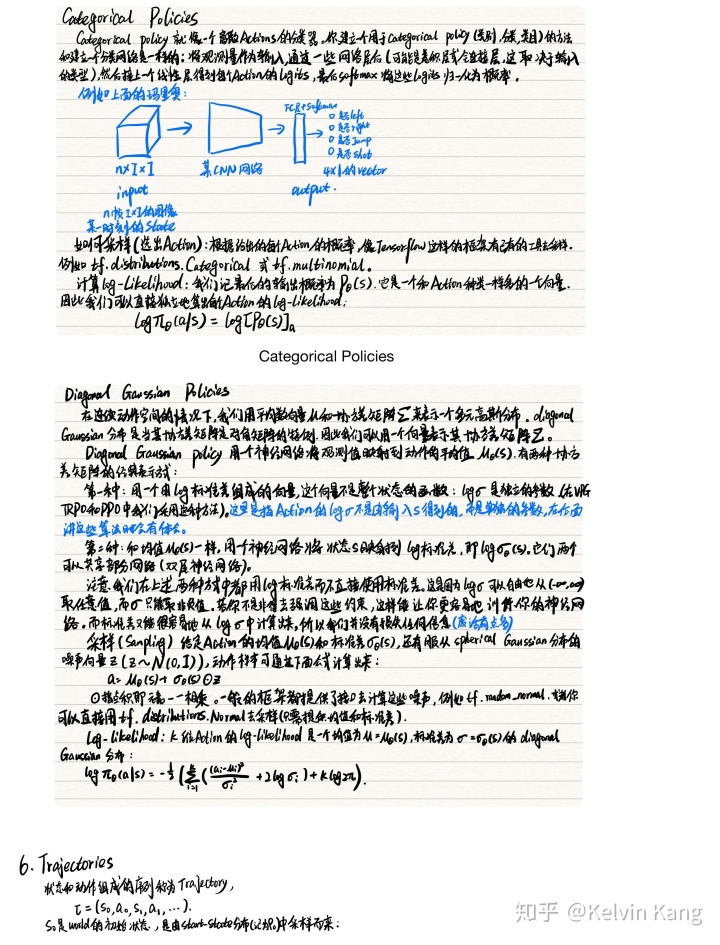 Categorical Policies
Categorical policy 就像一个离散Actions的分类器。你建立一个用于categorical policy(类别,分类,类目)的方法
和建立一个分类网络是一样的:将观测量作为输入,通过一些网络层后(可能是卷积层或全连接层,这取决于输入
的类型),然后接上一个线性层得到每个Action的logits,最后softmax将这些logits归一化为概率。
例如上面的玛里奥:
FC层+Softmax
0 是否left
0 是否right
0 是否Jump
0 是否shot
n×I×I
某CNN网络
4×1的vector
input
output.
n帧I×I的图像
某一时刻的State
如何采样(选出Action):根据给出的每个Action的概率,像Tensorflow这样的框架有已有的工具去采样.
例如 tf.distributions.Categorical 或 tf.multinomial。
计算log-Likelihood:我们记最后的输出概率为Pθ(s).它是一个和Action种类一样多的一个向量.
因此我们可以直接独立地算出每个Action的log-likelihood:
logπθ(a|s) = log[Pθ(s)]a
Categorical Policies
Diagonal Gaussian Policies
在连续动作空间的情况下,我们用平均数向量μ和协方差矩阵Σ来表示一个多元高斯分布。diagonal
Gaussian 分布是当其协方差矩阵是对角矩阵的特例.因此我们可以用一个向量表示其协方差矩阵Σ。
Diagonal Gaussian policy 用一个神经网络将观测值映射到动作的平均值 μθ(s).有两种协方
差矩阵的经典表示方式:
第一种:用一个由log标准差组成的向量,这个向量不是整个状态的函数:logσ是独立的参数(在VPG
TRPO和PPO中我们采用这种方法)。这里是指Action的logσ不是由输入s得到的,而是单独的参数,在后面
讲这些算法时会有体会。
第二种:和均值μθ(s)一样,用一个神经网络将状态s映射到log标准差,即logσθ(s).它们两个
可以共享部分网络(双层神经网络)。
注意我们在上述两种方式中都用log标准差而不直接使用标准差.这是因为logσ可以自由地从(-∞,∞)
取任意值,而σ只能取非负值.若你不是非常去强调这些约束,这样能让你更容易地训练你的神经网
络。而标准差又能很容易地从logσ中计算出来,所以我们并没有损失任何信息
采样(Sampling) 给定Action的均值μθ(s)和标准差σθ(s),还有服从spherical Gaussian分布的
噪声向量z(z~N(0,I)),动作样本可通过下面公式计算出来:
a = μθ(s) + σθ(s)⊙z
⊙指点积即元素一一相乘。一般的框架都提供了接口去计算这些噪声,例如tf.random_normal.或者你
可以直接用tf.distributions.Normal去采样(只需提供均值和标准差).
Log-likelihood:k维Action的log-likelihood是一个均值为μ=μθ(s),标准差为σ=σθ(s)的diagonal
Gaussian分布:
logπθ(a|s) = -1/2(Σ_{i=1}^{k}((ai-μi)²/σi² + 2logσi) + klog2π).
6. Trajectories
状态和动作组成的序列称为Trajectory,
τ = (s0,a0,s1,a1,…).
s0是world的初始状态,是由start-state分布(记ρ0)中采样而来:
知乎 @Kelvin Kang